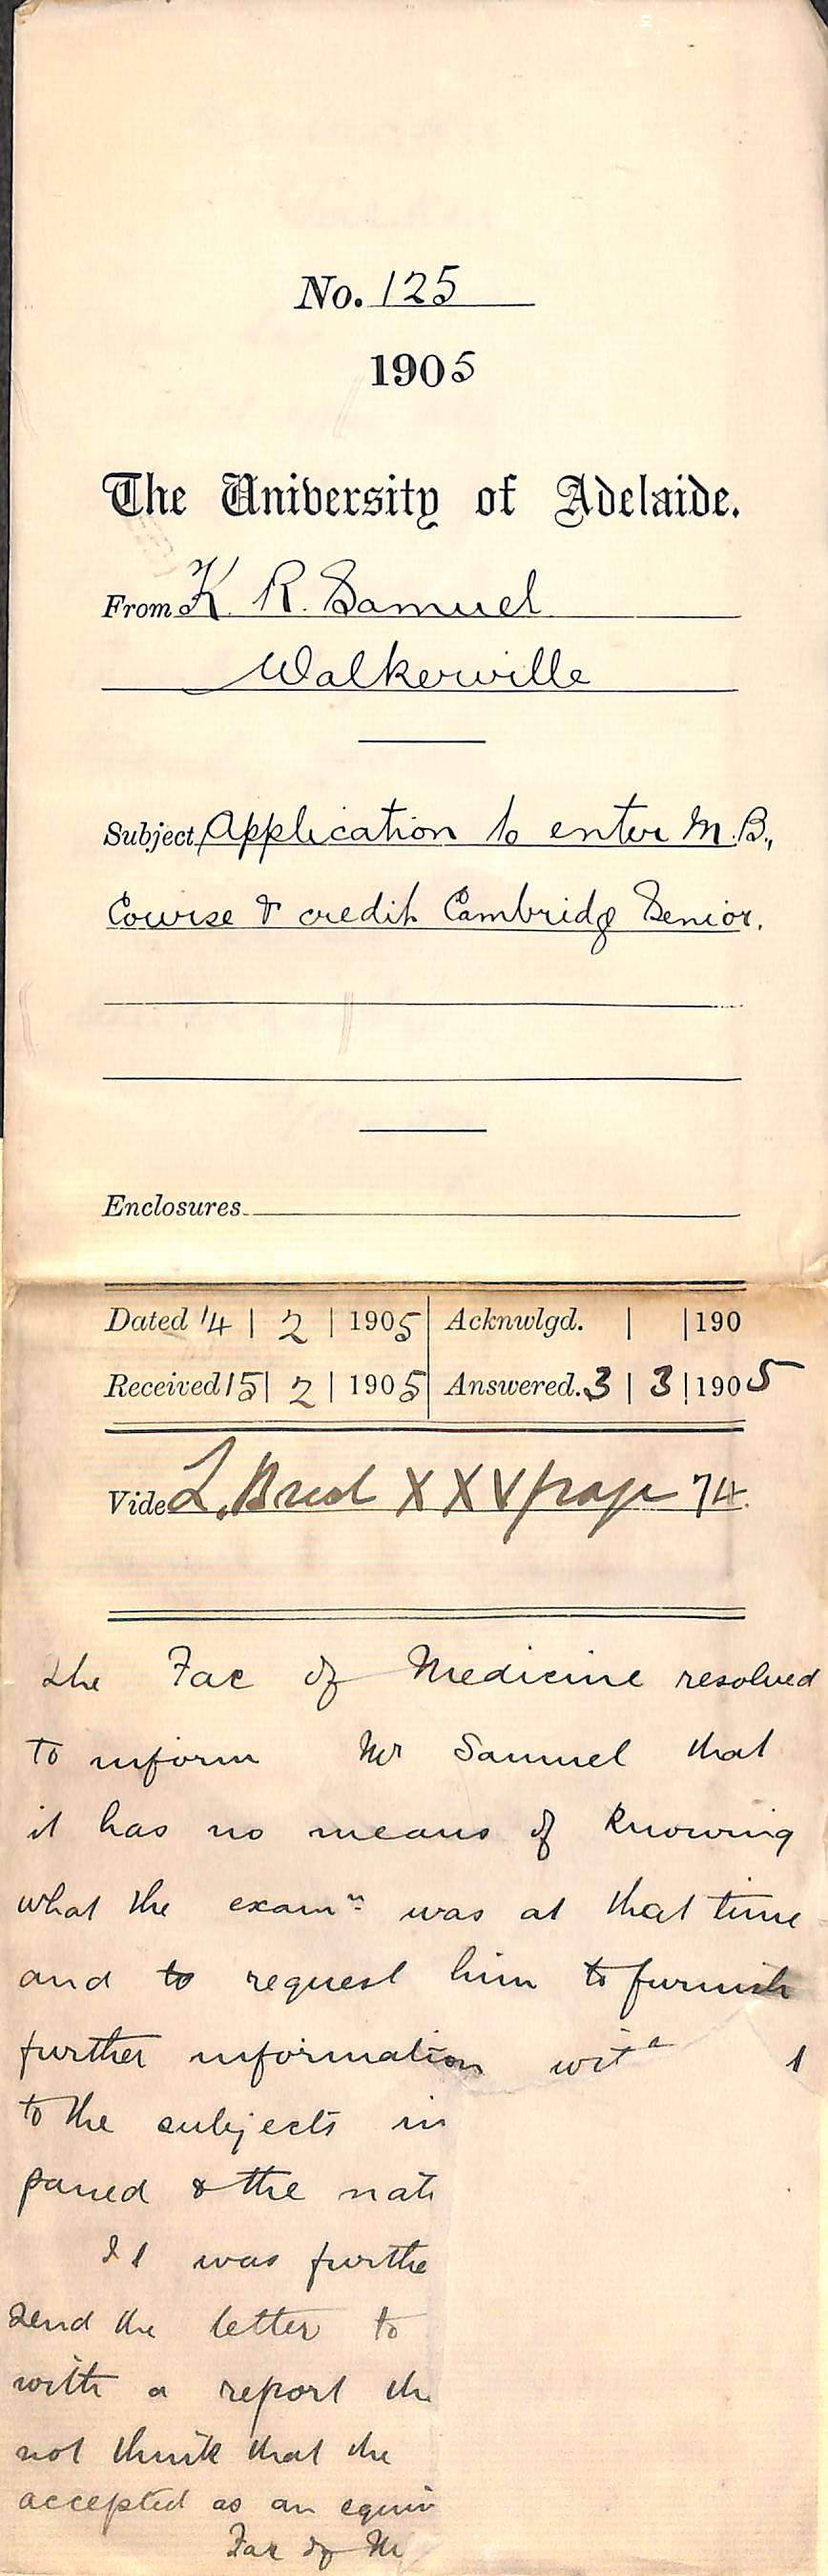 No. 125
1905
The University of Adelaide.
From K. R. Samuel
Walkerville
Subject Application to enter M.B.,
Course & credit Cambridg Senior.
Enclosures
Dated 14 | 2 | 1905 Acknwlgd. | | 190
Received 15 | 2 | 1905 Answered. 3 | 3 | 1905
Vide XXV page 74.
The Fac of Medicine resolved
to inform Mr Samuel that
it has no means of knowing
what the examn was at that time
and to request him to furnish
further information with
to the subjects in
passed & the nat
It was furthe
send the letter to
with a report th
not think that the
accepted as an equiv
Fac of M